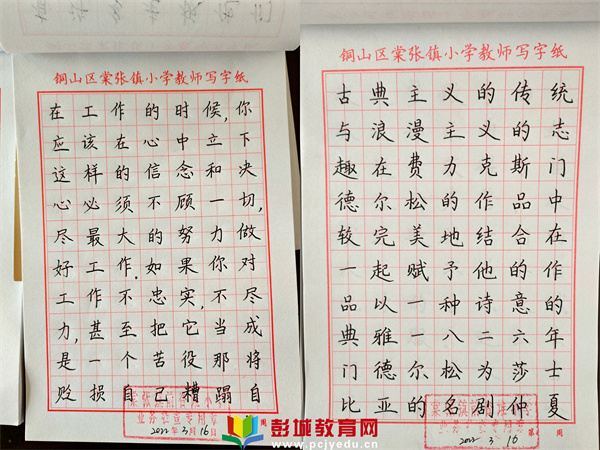 铜山区棠张镇小学教师写字纸
在工作的时候,你
应该在心中立下
这样的信念和决
心必须不顾一切,
尽最大的努力做
好工作,如果你对
工作不忠实,不尽
力,甚至把它当成
是一个苦役那将
贬损自己糟蹋自
2022年3月16日
周
铜山区棠张镇小学教师写字纸
古典主义的传统
与浪漫主义的志
趣在费力克斯门
德尔松的作品中
较完美地结合在
一起赋予他的作
品以一种诗意的
典雅一八二六年
门德尔松为莎士
比亚的名剧仲夏
2022 3 16
周
彭城教育网
www.pcjyedu.cn